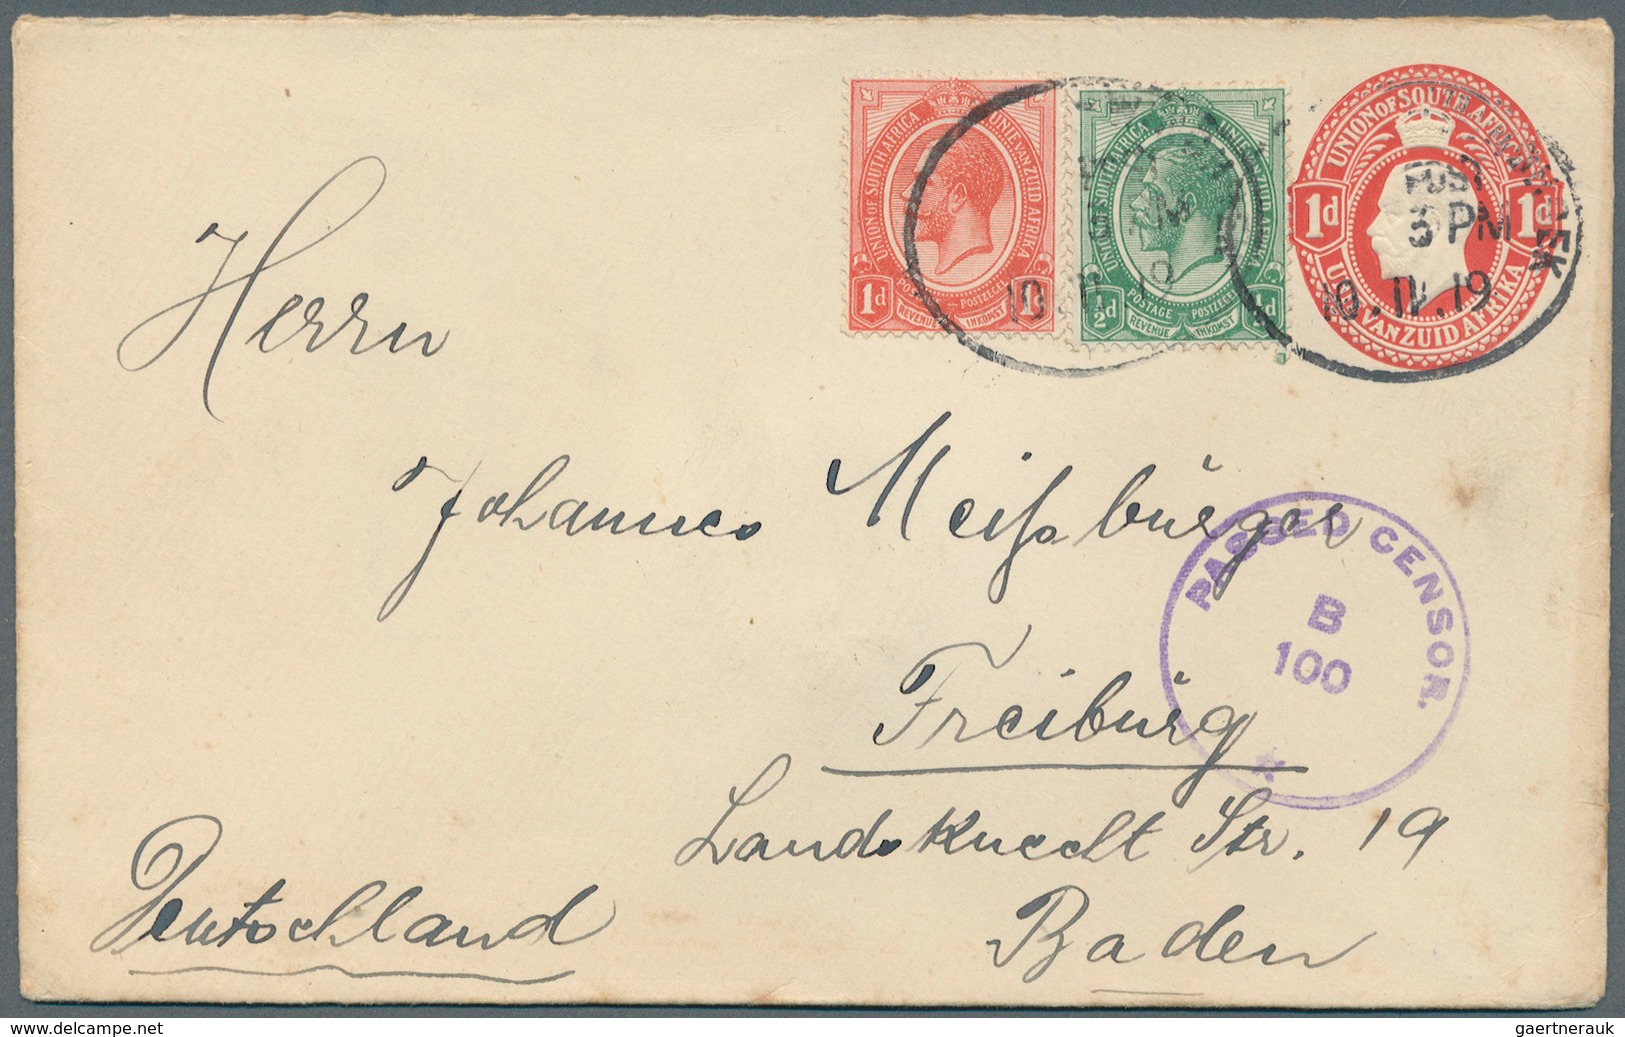 UNION OF SOUTH AFRICA UNIE VAN ZUID AFRIKA
1d POSTAGE POSTZEGEL 1d
REVENUE INKOMST
UNION OF SOUTH AFRICA UNIE VAN ZUID AFRIKA
½d POSTAGE POSTZEGEL ½d
REVENUE INKOMST
UNION OF SOUTH AFRICA
1d 1d
UNIE VAN ZUID AFRIKA
3 PM
10. IV. 19
Herrn
Johannes Meißbürger
PASSED CENSOR.
B
100
Freiburg
Landsknecht Str. 19
Deutschland
Baden
www.delcampe.net
gaertnerauk